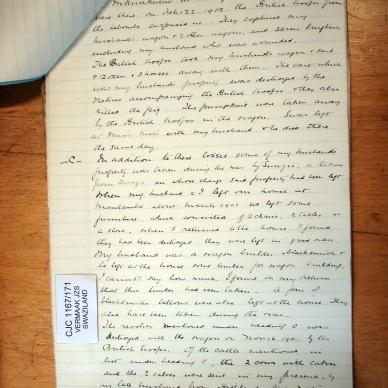 were there on Feb. 22, 1902 the British troops from
the captured us. They captured my
husband's wagon & 2 other wagons, and seven burghers
including my husband who was wounded.
The British troops took my husband's wagon & cart
& 12 oxen & 3 horses away with them. The cart which
was my husband's property was destroyed by the
Natives accompanying the British troops, they also
killed the pig. The pumpkins were taken away
by the British troops in the wagon. I was left
at with my husband, who died there
the same day.
C. In addition to these losses some of my husband's
property was taken during the war by Swazis, or taken
from Swazis in whose charge said property had been left.
When my husband & I left our house at
about March 1901 we left some
furniture which consisted of 2 chairs, 2 tables, &
a stove, when I returned to the house I found
they had been destroyed they were left in good order.
My husband was a wagon builder & blacksmith &
he left at the house some timber for wagon building.
I cannot say how much. I found on my return
that this timber had been taken. A pair of
blacksmiths bellows was also left at the house. They
also have been taken during the war.
The revolver mentioned under heading 2 was
destroyed with the wagon on 1901, by the
British troops. Of the cattle mentioned in
list under heading 2, the 2 cows with calves
and the 2 calves were sent in my presence, by
my late husband from
CJC 1167/171
VERMAAK JZS
SWAZILAND